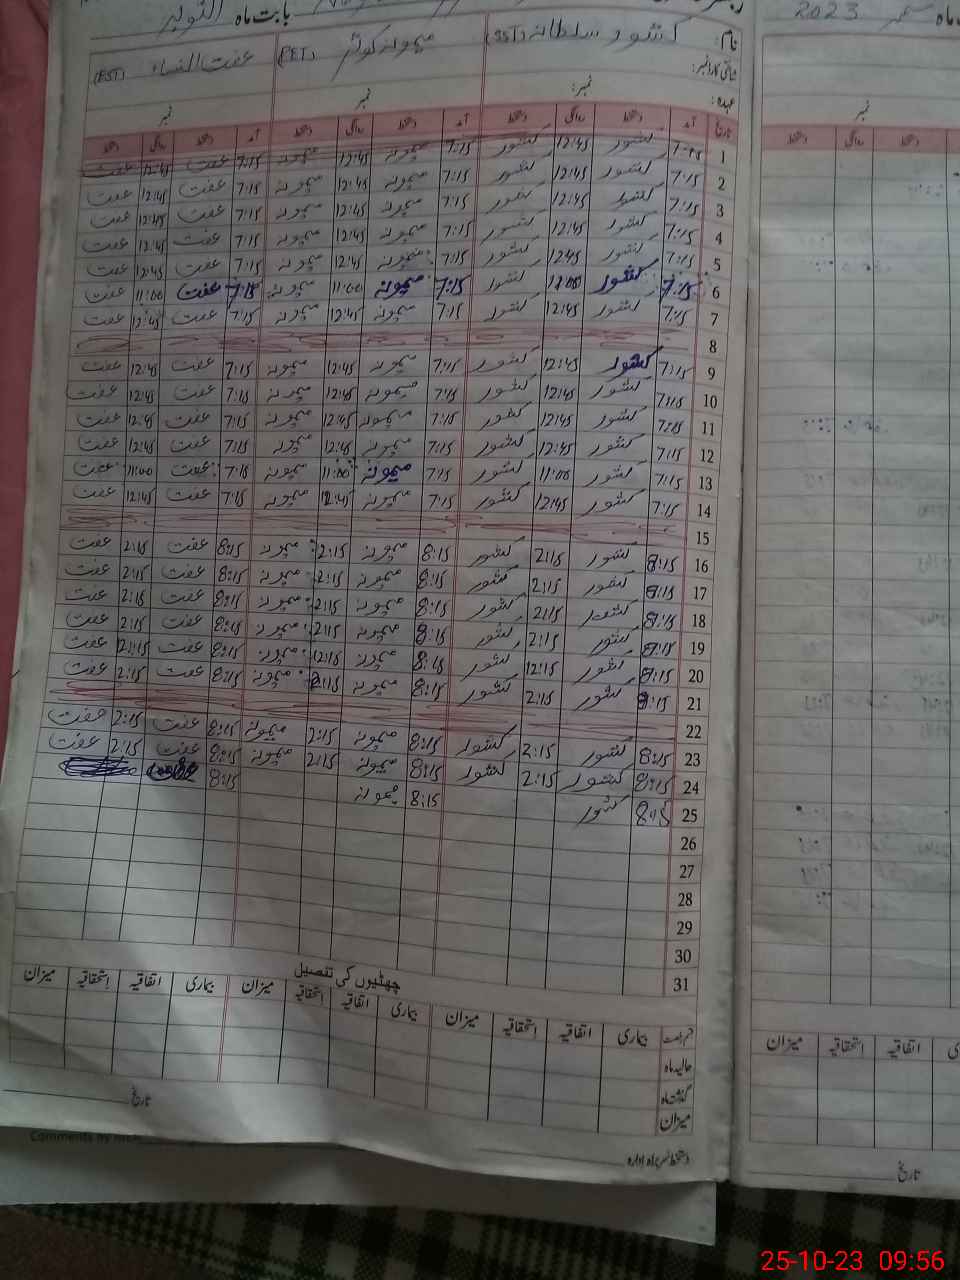 بابت ماہ اکتوبر
ماہ ستمبر 2023
نام: کشور سلطانہ (SST) میمونہ کوثر (PET) عفت النساء (EST)
شناختی کارڈ نمبر:
عہدہ: نمبر: نمبر نمبر
تاریخ آمد دستخط روانگی دستخط آمد دستخط روانگی دستخط آمد دستخط روانگی دستخط
1 7:15 کشور 12:45 کشور 7:15 میمونہ 12:45 میمونہ 7:15 عفت 12:45 عفت
2 7:15 کشور 12:45 کشور 7:15 میمونہ 12:45 میمونہ 7:15 عفت 12:45 عفت
3 7:15 کشور 12:45 کشور 7:15 میمونہ 12:45 میمونہ 7:15 عفت 12:45 عفت
4 7:15 کشور 12:45 کشور 7:15 میمونہ 12:45 میمونہ 7:15 عفت 12:45 عفت
5 7:15 کشور 12:45 کشور 7:15 میمونہ 12:45 میمونہ 7:15 عفت 12:45 عفت
6 7:15 کشور کشور 7:15 میمونہ 11:00 میمونہ 7:15 عفت 11:00 عفت
7 7:15 کشور 12:45 کشور 7:15 میمونہ 12:45 میمونہ 7:15 عفت 12:45 عفت
8
9 7:15 کشور 12:45 کشور 7:15 میمونہ 12:45 میمونہ 7:15 عفت 12:45 عفت
10 7:15 کشور 12:45 کشور 7:15 میمونہ 12:45 میمونہ 7:15 عفت 12:45 عفت
11 7:15 کشور 12:45 کشور 7:15 میمونہ 12:45 میمونہ 7:15 عفت 12:45 عفت
12 7:15 کشور 12:45 کشور 7:15 میمونہ 12:45 میمونہ 7:15 عفت 12:45 عفت
13 7:15 کشور 11:00 کشور 7:15 میمونہ 11:00 میمونہ 7:15 عفت 11:00 عفت
14 7:15 کشور 12:45 کشور 7:15 میمونہ 12:45 میمونہ 7:15 عفت 12:45 عفت
15
16 8:15 کشور 2:15 کشور 8:15 میمونہ 2:15 میمونہ 8:15 عفت 2:15 عفت
17 8:15 کشور 2:15 کشور 8:15 میمونہ 2:15 میمونہ 8:15 عفت 2:15 عفت
18 8:15 کشور 2:15 کشور 8:15 میمونہ 2:15 میمونہ 8:15 عفت 2:15 عفت
19 8:15 کشور 2:15 کشور 8:15 میمونہ 2:15 میمونہ 8:15 عفت 2:15 عفت
20 8:15 کشور 12:15 کشور 8:15 میمونہ 12:15 میمونہ 8:15 عفت 12:15 عفت
21 8:15 کشور 2:15 کشور 8:15 میمونہ 2:15 میمونہ 8:15 عفت 2:15 عفت
22
23 8:15 کشور 2:15 کشور 8:15 میمونہ 2:15 میمونہ 8:15 عفت 2:15 عفت
24 8:15 کشور 2:15 کشور 8:15 میمونہ 2:15 میمونہ 8:15 عفت 2:15 عفت
25 8:15 کشور 8:15 میمونہ 8:15
26
27
28
29
30
31
چھٹیوں کی تفصیل
قسم رخصت بیماری اتفاقیہ استحقاقیہ میزان بیماری اتفاقیہ استحقاقیہ میزان بیماری اتفاقیہ استحقاقیہ میزان
حالیہ ماہ
گذشتہ ماہ
میزان
دستخط سربراہ ادارہ تاریخ
نمبر
دستخط روانگی دستخط
اتفاقیہ استحقاقیہ میزان
تاریخ
Comments by
25-10-23 09:56